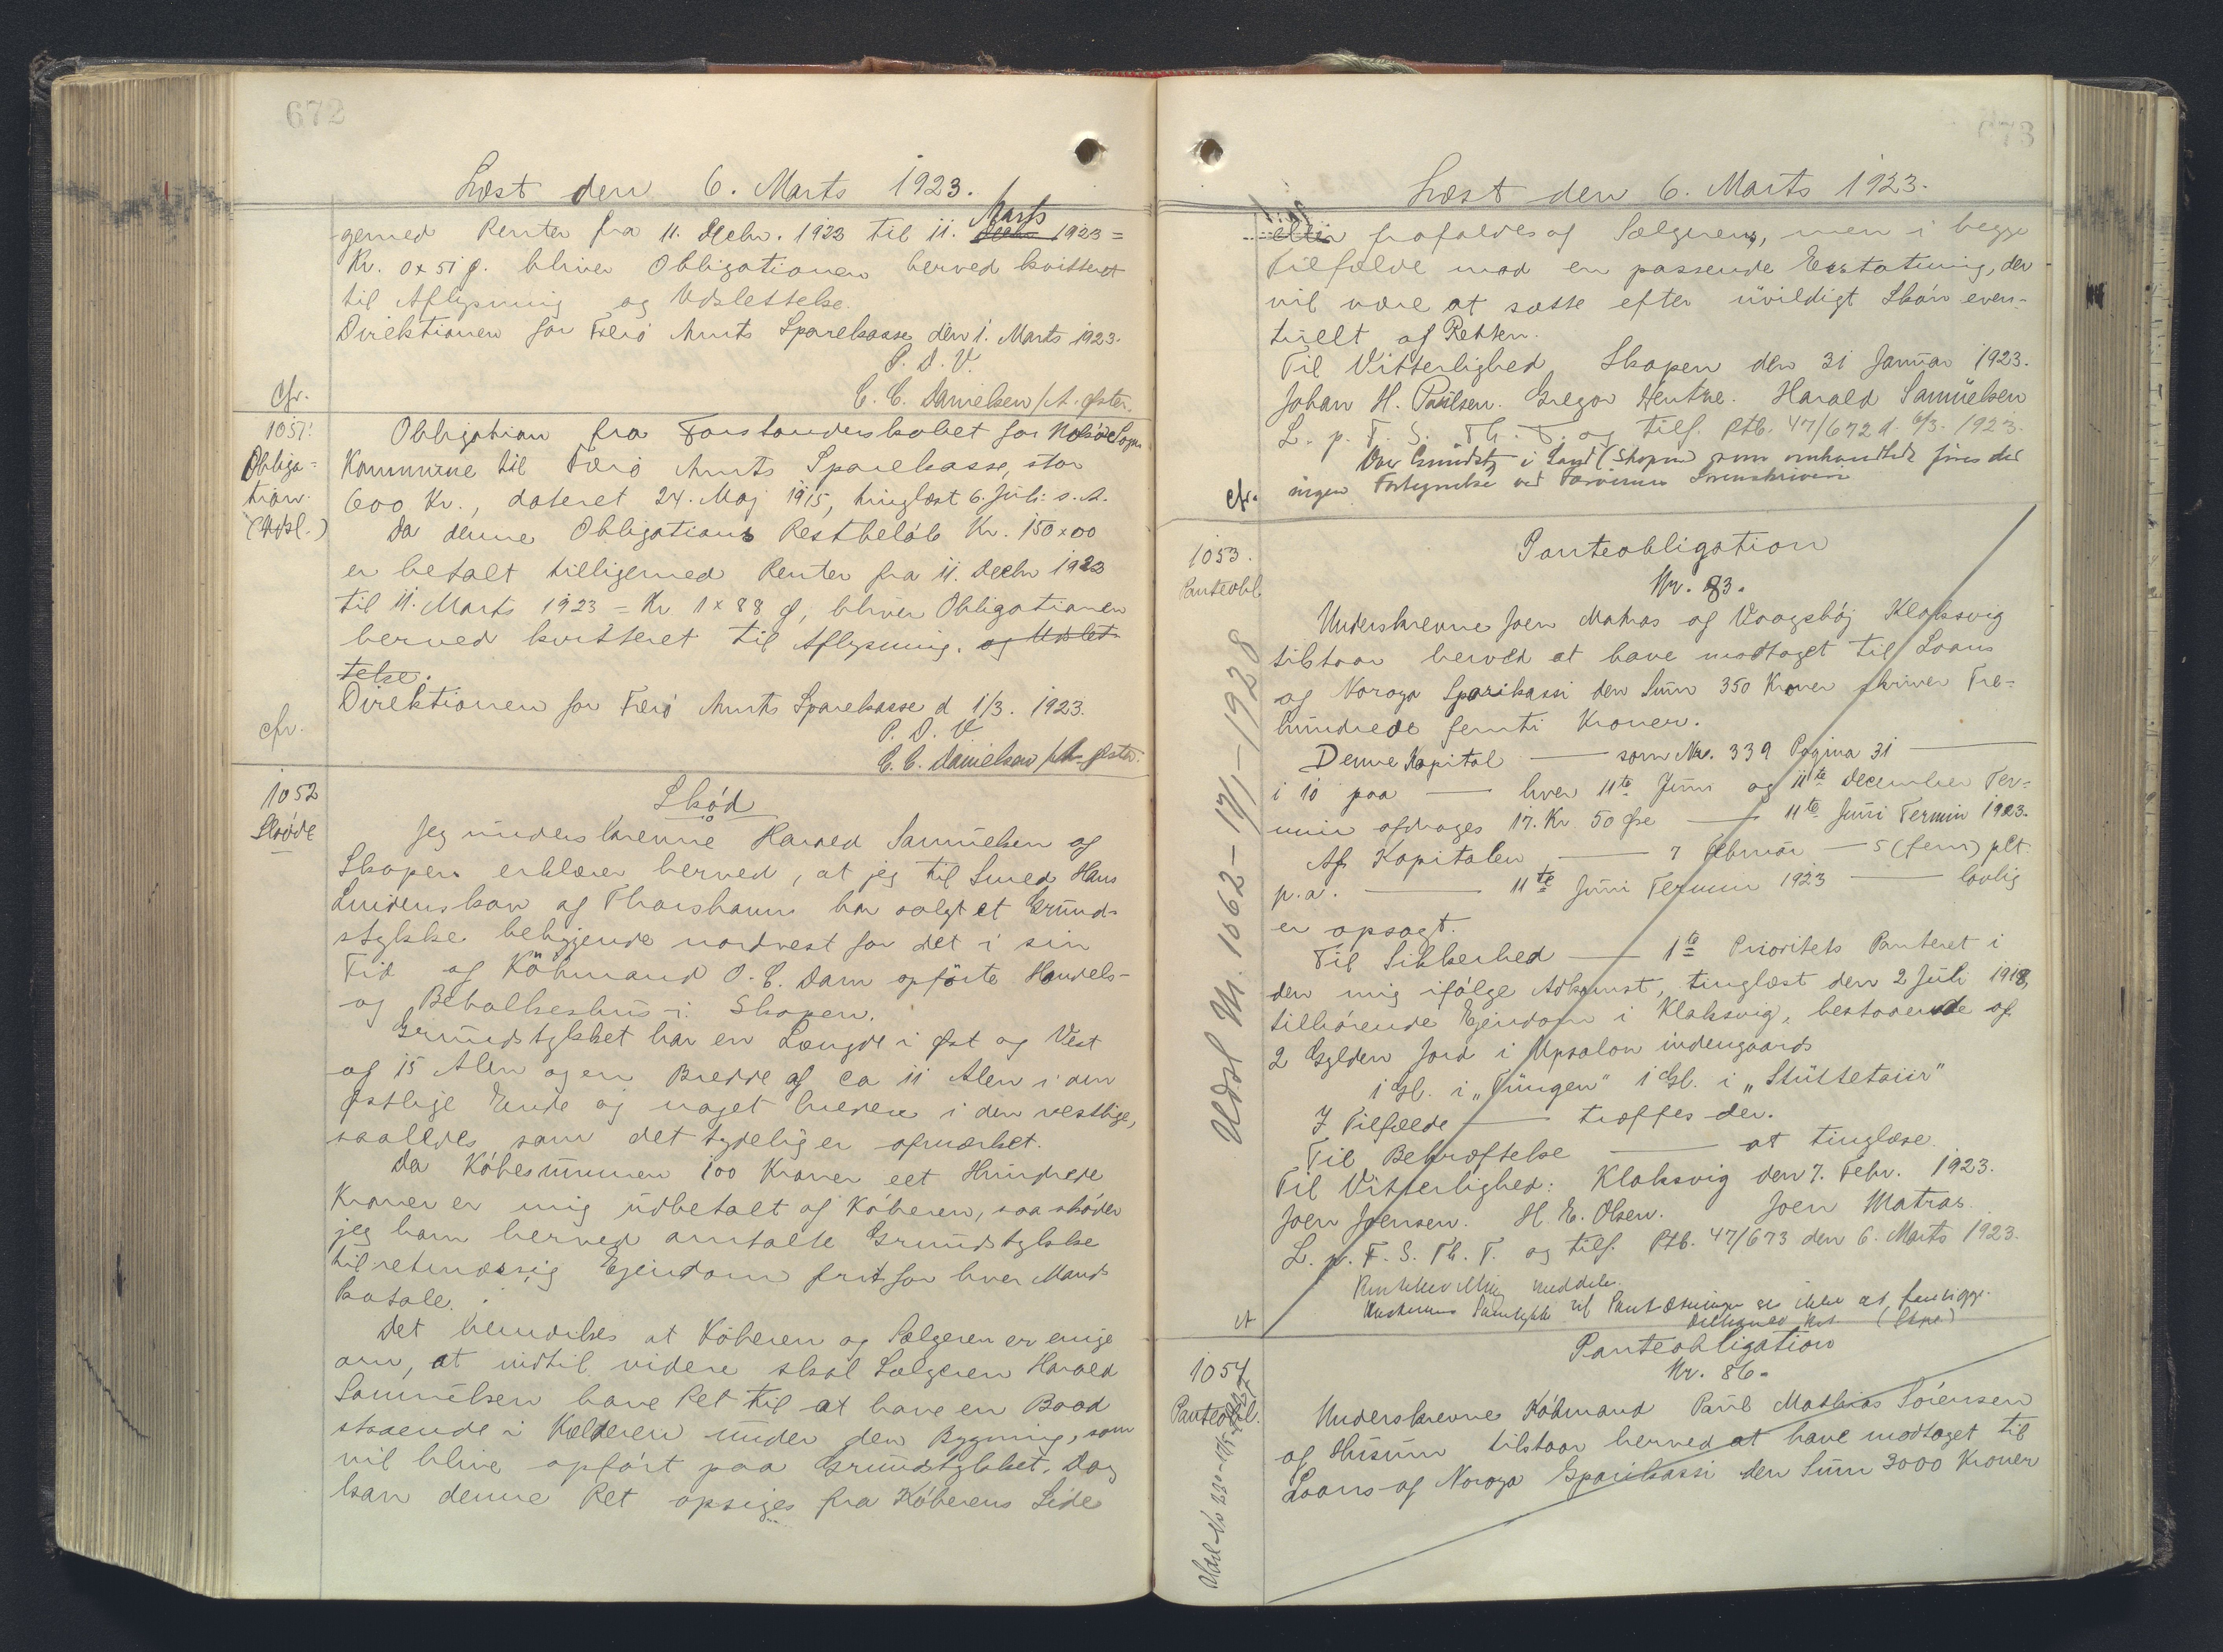 672
Læst den 6. Marts 1923.
Marts
gemed Renter fra 11. Decbr. 1923 til 11. Decbr 1923 =
Kr. 0 x 51 ø. bliver Obligationen herved kvitteret
til Aflysning og Udslettelse.
Direktionen for Færø Amts Sparekasse den 1. Marts 1923.
P. D. V.
C. C. Danielsen / A. Øster.
Cfr.
1051.
Obliga-
tion.
(Udsl.)
Obligation fra Forstanderskabet for Nolsø Sogns
Kommune til Færø Amts Sparekasse, stor
600 Kr., dateret 24. Maj 1915, tinglæst 6. Juli s. A.
Da denne Obligations Restbeløb Kr. 150 x 00
er betalt tilligemed Renter fra 11. Decbr 1923
til 11. Marts 1923 = Kr 1 x 88 ø, bliver Obligationen
herved kvitteret til Aflysning. og Udslet-
telse.
Direktionen for Færø Amts Sparekasse d 1/3. 1923.
P. D. V.
C. C. Danielsen / A. Øster.
cfr.
1052
Skøde
Skød
Jeg underskrevne Harald Samuelsen af
Skopen erklærer herved, at jeg til Smed Hans
Lnidenskov af Thorshavn har solgt et Grund-
stykke beliggende nordvest for det i sin
Tid af Købmand O. C. Dam opførte Handels-
og Beboelseshus i Skopen.
Grundstykket har en Længde i Øst og Vest
af 15 Alen og en Bredde af ca 11 Alen i den
østlige Ende og noget bredere i den vestlige,
saaledes som det tydelig er afmærket.
Da Købesummen 100 Kroner eet Hundrede
Kroner er mig udbetalt af Køberen, saa skøder
jeg ham herved omtalte Grundstykke
til retmæssig Ejendom frit for hver Mands
Paatale.
Det bemærkes at Køberen og Sælgeren er enige
om, at indtil videre skal Sælgeren Harald
Samuelsen have Ret til at have en Baad
staaende i Kælderen under den Bygning, som
vil blive opført paa Grundstykket. Dog
kan denne Ret opsiges fra Køberens Side
673
Læst den 6. Marts 1923.
eller frafaldes af Sælgeren, men i begge
Tilfælde mod en passende Erstatning, der
vil være at sætte efter uvildigt Skøn even-
tuelt af Retten.
Til Vitterlighed Skopen den 31 Januar 1923.
Johan H. Poulsen. Gregor Hentze. Harald Samuelsen
L. p. F. S. Th. T. og tilf. Ptb. 47/672 d. 6/3. 1923.
Over Grundstk i Sand (Skopen) som omhandlede findes der
ingen Fortegnelse ved Færøernes Sorenskriveri
cfr.
1053.
Panteobl.
Udsl Nr. 1062 - 17/1 - 1928
Panteobligation
Nr. 83.
Underskrevne Joen Matras af Vaagshøj Klaksvig
tilstaar herved at have modtaget til Laans
af Noroya Sparikassi den Sum 350 Kroner skriver Tre-
hundrede femti Kroner.
Denne Kapital — som No. 339 Pagina 31 —
i 10 paa — hver 11te Juni og 11te December Ter-
min afdrages 17. Kr 50 Øre — 11te Juni Termin 1923.
Af Kapitalen — 7 Februar — 5 (fem) pCt.
p.a. — 11te Juni Termin 1923 — lovlig
er opsagt.
Til Sikkerhed — 1te Prioritets Panteret i
den mig ifølge Adkomst, tinglæst den 2 Juli 1918,
tilhørende Ejendom i Klaksvig, bestaaende af
2 Gylden Jord i Upsalon indengaards
1 Gl. i „Tungen" 1 Gl. i „Stuttetaiir"
I Tilfælde — træffes der.
Til Bekræftelse — at tinglæse.
Til Vitterlighed: Klaksvig den 7. Febr. 1923.
Joen Joensen. H. E. Olsen. Joen Matras.
L. p. F. S. Th. T. og tilf. Ptb. 47/673 den 6. Marts 1923.
meddeles.
Hustruens Samtykke til Pantsætningen ses ikke at foreligge.
1054
Panteobl.
Panteobligation
Nr. 86.
Underskrevne Købmand Paul Mathias Sørensen
af Husum tilstaar herved at have modtaget til
Laans af Noroya Sparikassi den Sum 3000 Kroner